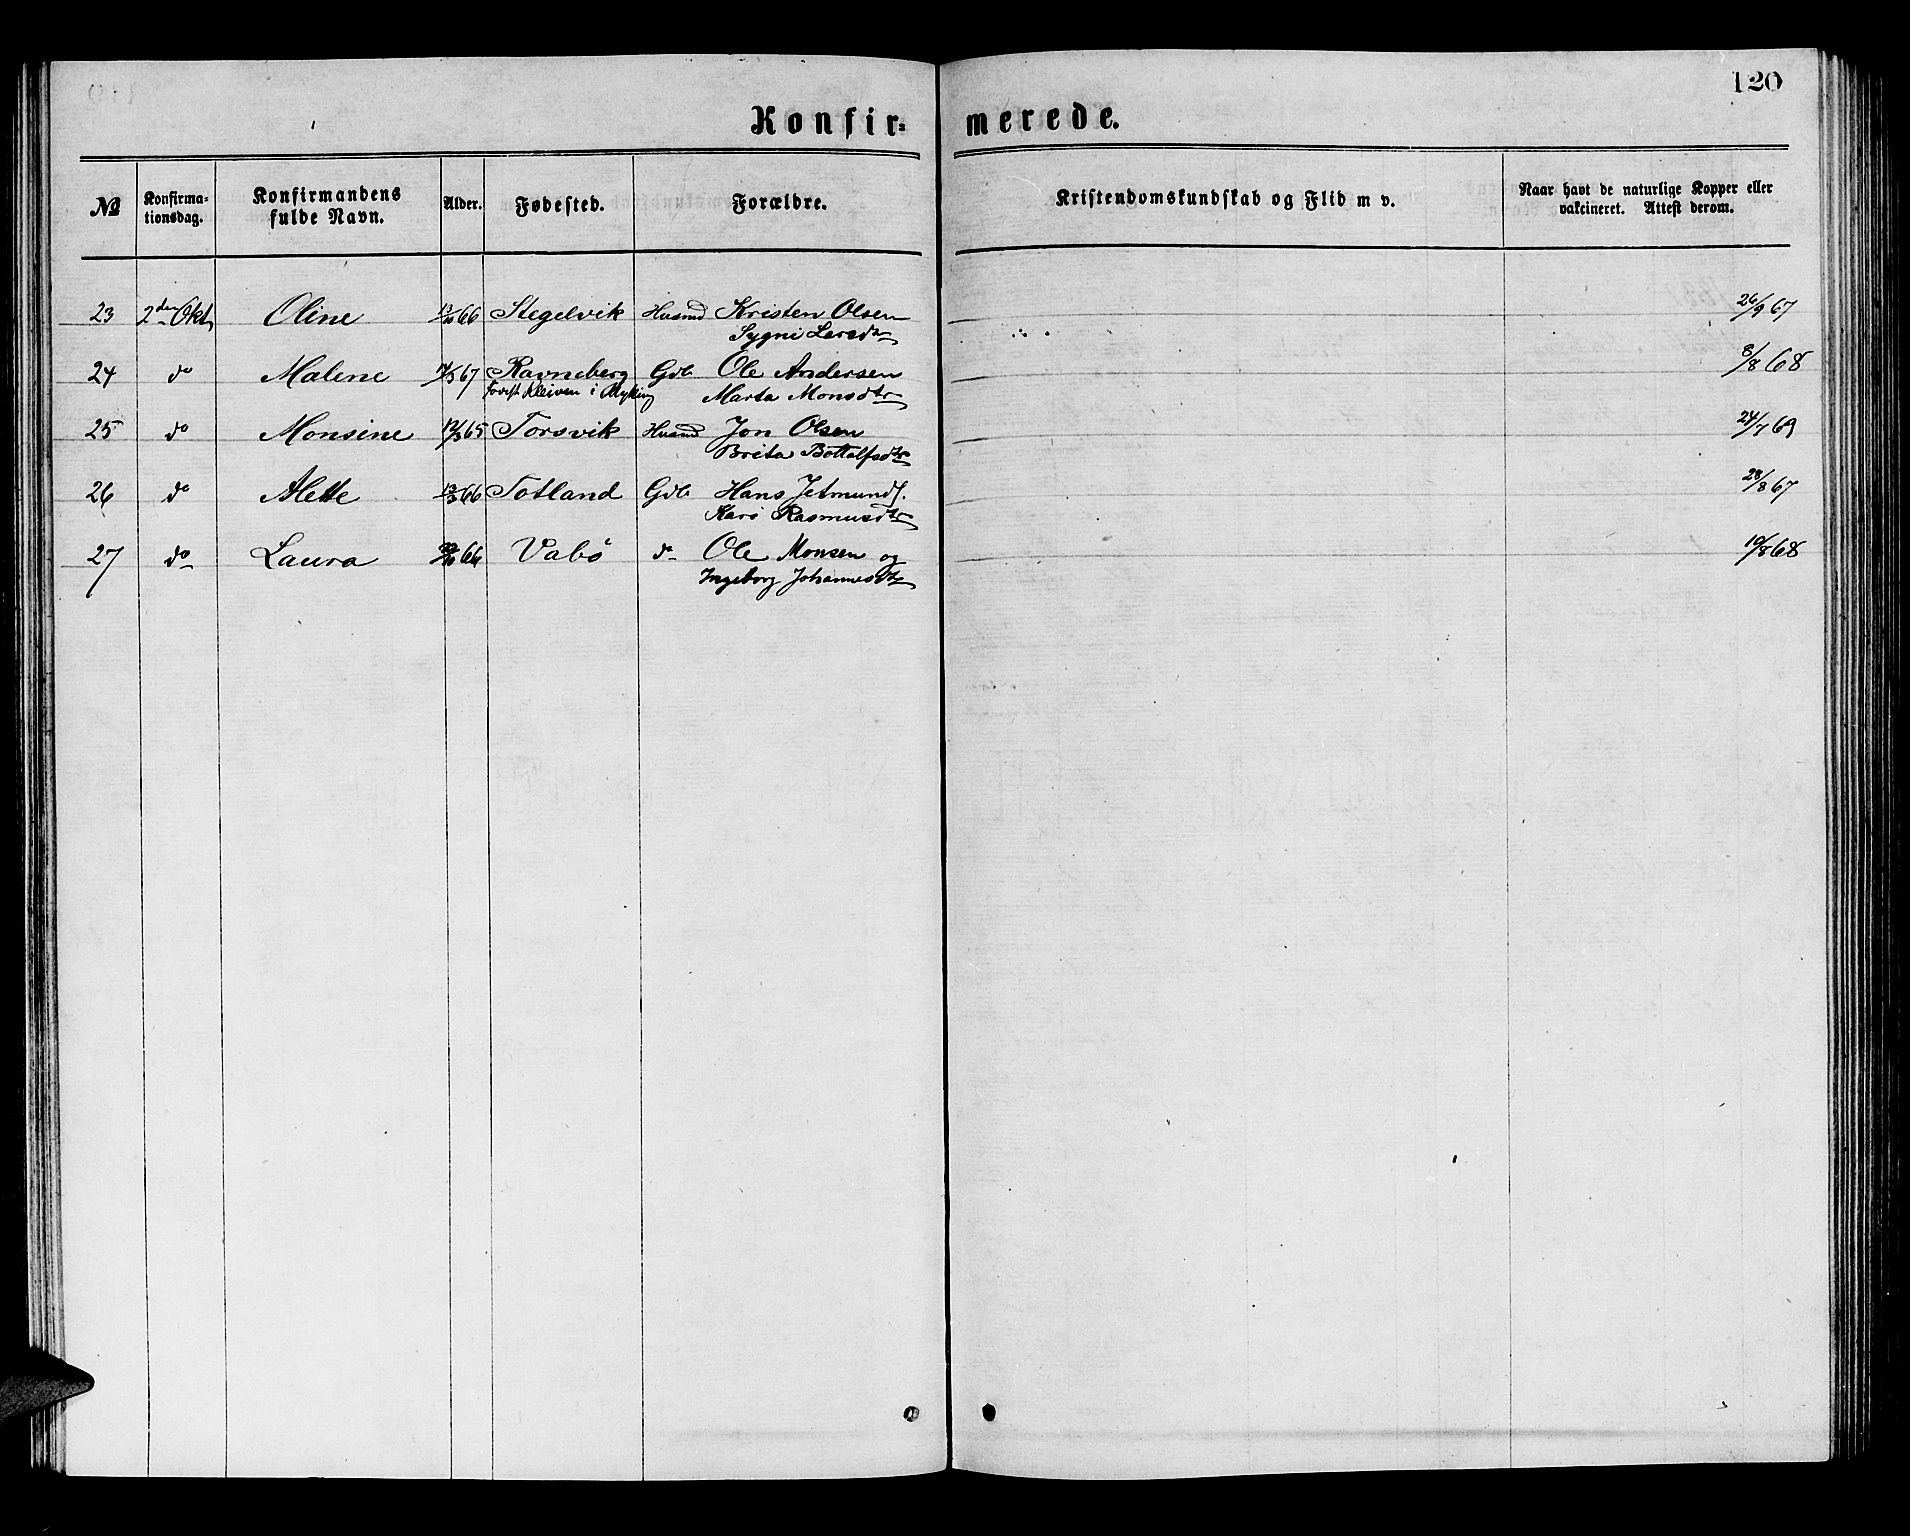 120
Konfir= merede.
№ Konfirma-tionsdag. Konfirmandens fulde Navn. Alder. Fødested. Forældre. Kristendomskundskab og Flid m v. Naar havt de naturlige Kopper eller vakcineret. Attest derom.
23 2den Okt Oline 66 Stegelvik Husmd Kristen Olsen 26/9 67
Sygni Larsdtr
24 do Malene 67 Ravneberg Gdb Ole Andersen 8/8 68
Kleiven i Myking Marta Monsdtr
25 do Monsine 12/3 65 Torsvik Husmd Jon Olsen 24/7 69
Brita Bottolfsdtr
26 do Alette 13/3 66 Totland Gdb Hans Jetmunds. 28/8 67
Kari Rasmusdtr
27 do Laura 66 Vabø do Ole Monsen og 10/8 68
Ingeborg Johannesdtr